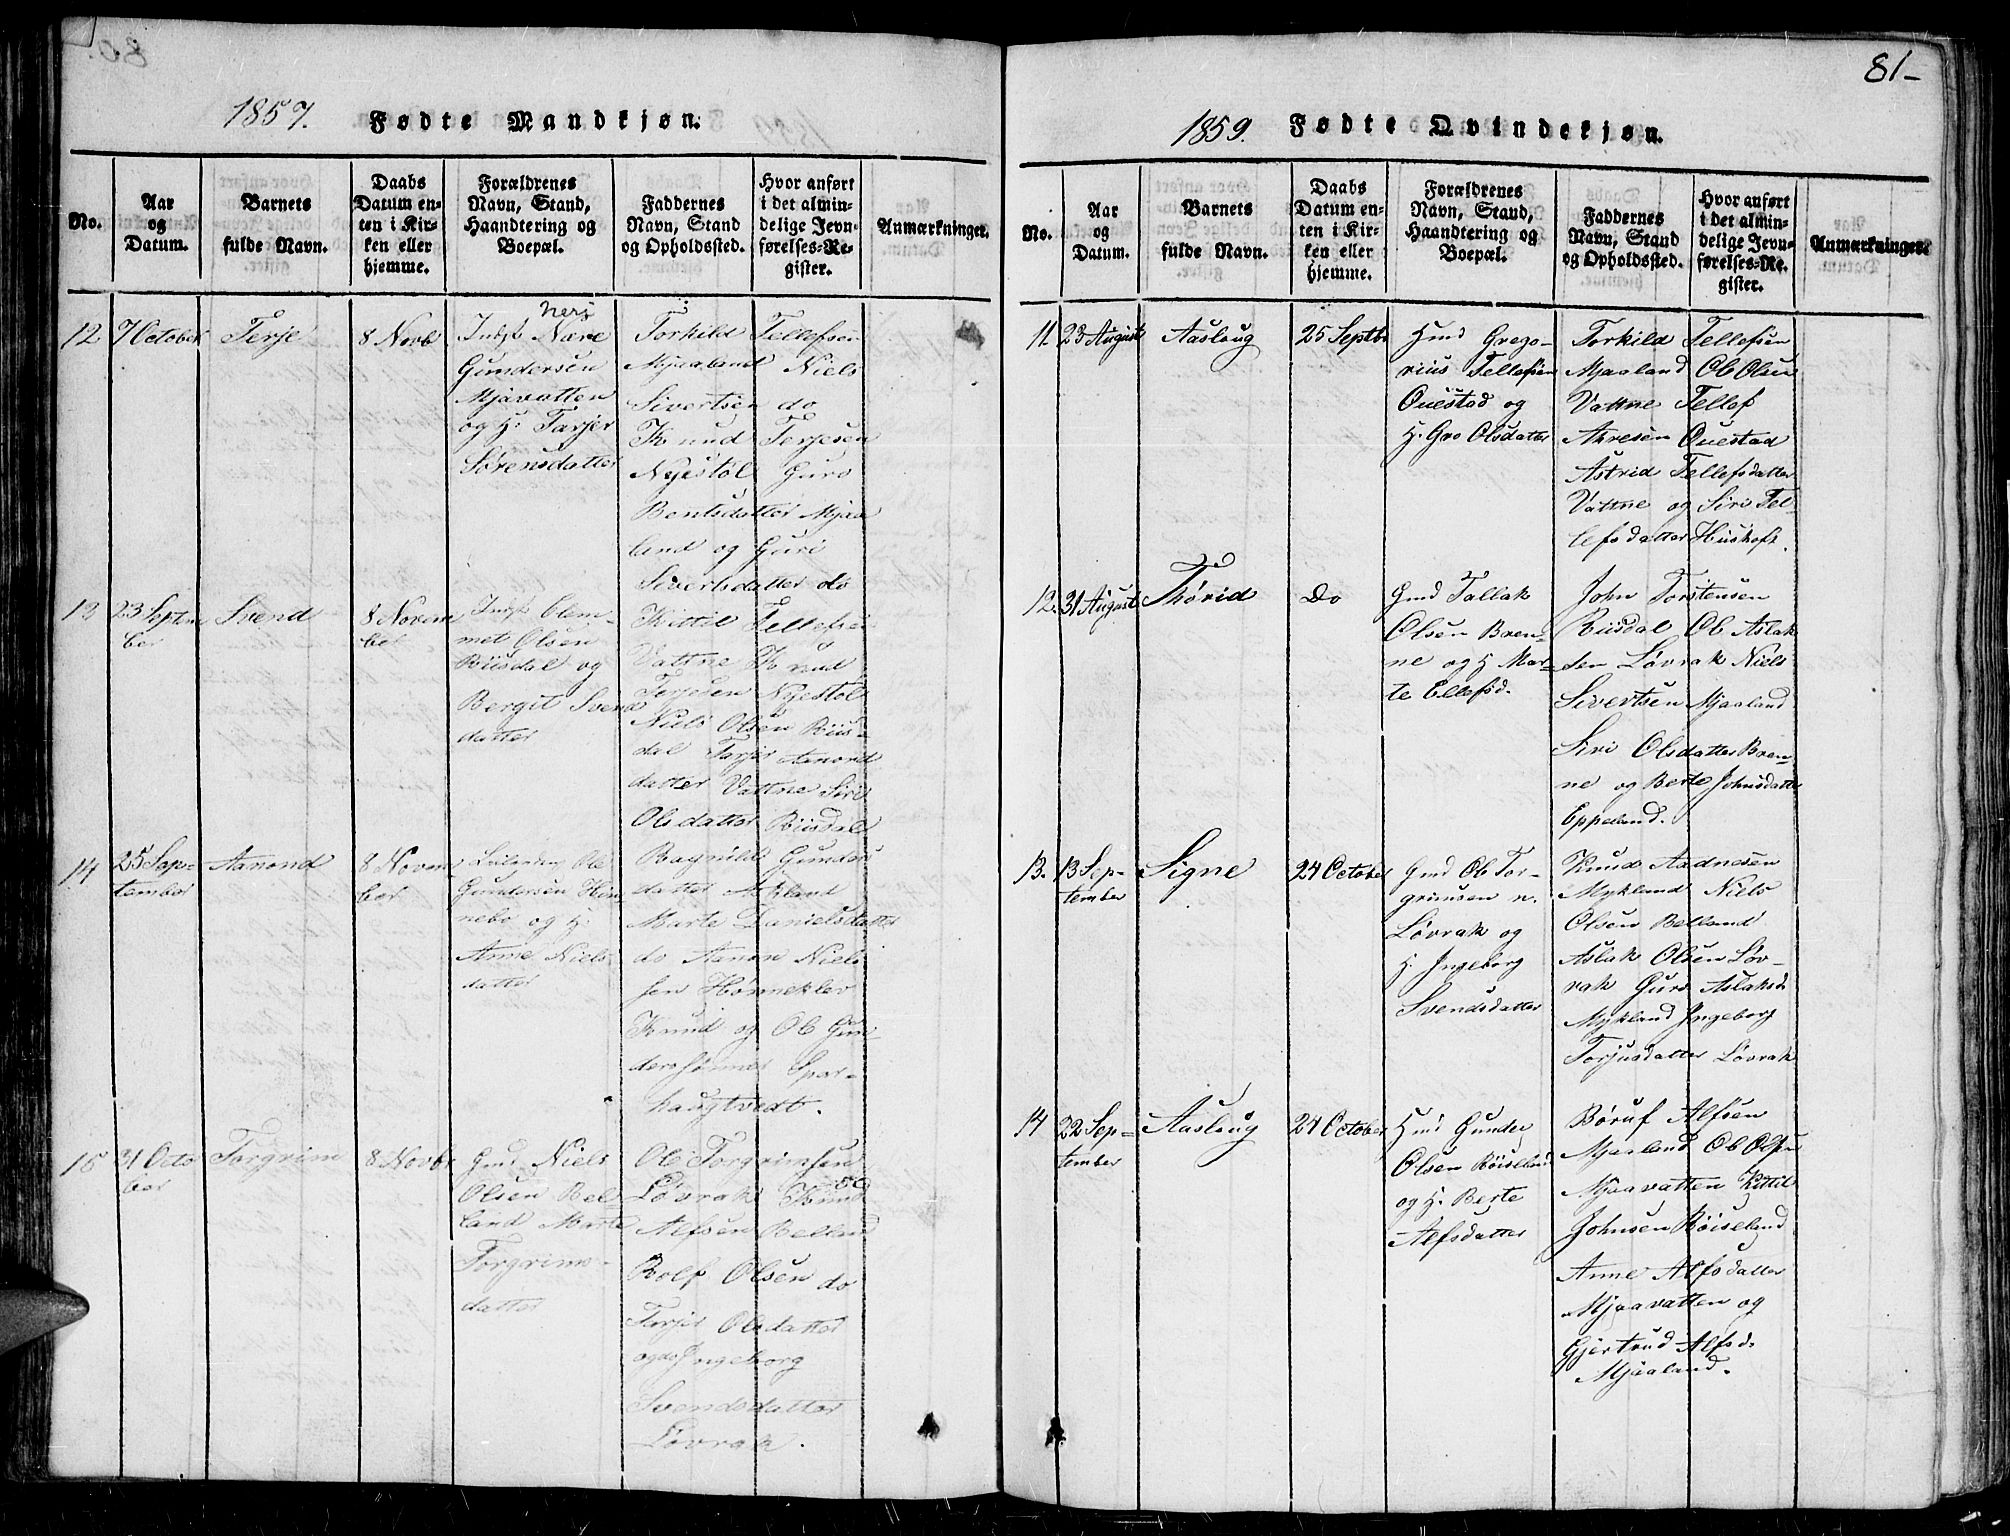 81-
1857. Fødte Mandkjøn.
No.
Aar
og
Datum.
Barnets
fulde Navn.
Daabs
Datum en-
ten i Kir-
ken eller
hjemme.
Forældrenes
Navn, Stand,
Haandtering og
Boepæl.
Faddernes
Navn, Stand
og Opholdssted.
Hvor anført
i det almin-
delige Jevn-
førelses-Re-
gister.
Anmærkninger.
12
7 October
Terje
8 Novb
Indst Nære
Gundersen
Mjavatten
og H. Tarjer
Sørensdatter
Torkild Tellefsen
Mjaaland Niels
Sivertsen do
Knud Terjesen
Nyestøl Guro
Bentsdatter Mjaa
land og Guri
Sivertsdatter do
13
23 Septem
ber
Svend
8 Novem
ber
Indst Clem-
met Olsen
Riisdal og
Bergit Svend
datter
Kittil Tellefsen
Vattne Knud
Terjesen Nyestøl
Niels Olsen Riis-
dal Tarjer Aanond
datter Vattne Siri
Olsdatter Riisdal
14
25 Sep-
tember
Aanond
8 Novem
ber
Leilending Ole
Gundersen Høn
nebo og H.
Anne Niels
datter
Ragnild Gunders
datter
Marte Danielsdatter
do Aanon Niels
sen Hønneklev
Knud og Ole Gun
dersønner Spar-
haugtvedt.
15
31 Octo
ber
Torgrim
8 Novbr
Gmd Niels
Olsen Bel
land Marte
Torgrims-
datter
Ole Torgrimsen
Løvrak Knud
Alfsen Belland
Rolf Olsen do
Tarjer Olsdatter
og Ingeborg
Svendsdatter
Løvrak.
1859. Fødte Qvindekjøn.
No.
Aar
og
Datum.
Barnets
fulde Navn.
Daabs
Datum en-
ten i Kir-
ken eller
hjemme.
Forældrenes
Navn, Stand,
Haandtering og
Boepæl.
Faddernes
Navn, Stand
og Opholdssted.
Hvor anført
i det almin-
delige Jevn-
førelses-Re-
gister.
Anmærkninger.
11.
23 August
Aasloug
25 Septbr
Hmd Grego-
rius Tellefsen
Ouestad og
H. Gro Olsdatter
Torkild Tellefsen
Mjaaland Ole Olsen
Vattne Tellef
Akresen Ouestad
Astrid Tellefsdatter
Vattne og Siri Tel-
lefsdatter Huskoft.
12.
31 August
Thorid
Do
Gmd Tallak
Olsen Bren-
ne og H Mar-
te Ellefsd.
John Torstensen
Riisdal Ole Aslak
sen Løvrak Niels
Sivertsen Mjaaland
Siri Olsdatter Bren-
ne og Berte Johnsdatter
Eppeland.
13.
13 Sep-
tember
Signe
24 October
Gmd Ole Tor-
grimsen n.
Løvrak og
H. Ingeborg
Svendsdatter
Knud Aadnesen
Mykland Niels
Olsen Belland
Aslak Olsen Løv-
rak Guro Aslaksd
Mykland Ingeborg
Torjusdatter Løvrak
14
22 Sep-
tember
Aasloug
24 October
Hmd Gunder
Olsen Røiseland
og H. Berte
Alfsdatter
Børuf Alfsen
Mjaaland Ole Olsen
Mjaavatten Kittil
Johnsen Røiseland
Anne Alfsdatter
Mjaavatten og
Gjertrud Alfsd.
Mjaaland.